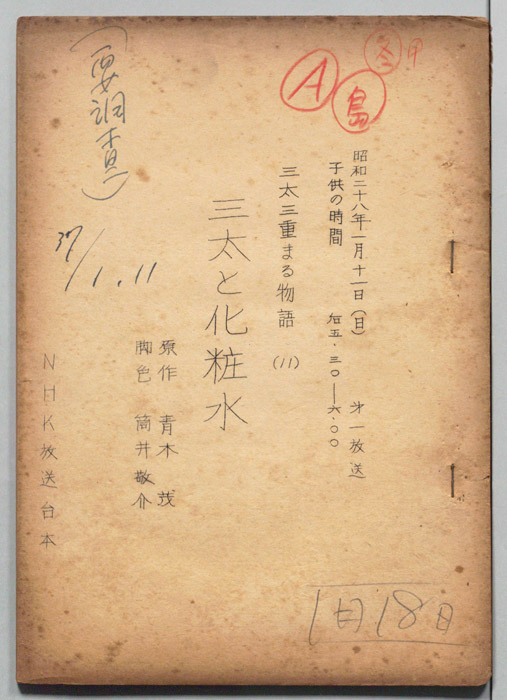 冬
A
島
昭和二十八年一月十一日(日) 才一放送
子供の時間 后五・三〇—六・〇〇
三太三重まる物語 (11)
三太と化粧水
原作 青木茂
脚色 筒井敬介
NHK放送台本
(要調査)
1.11
1月18日